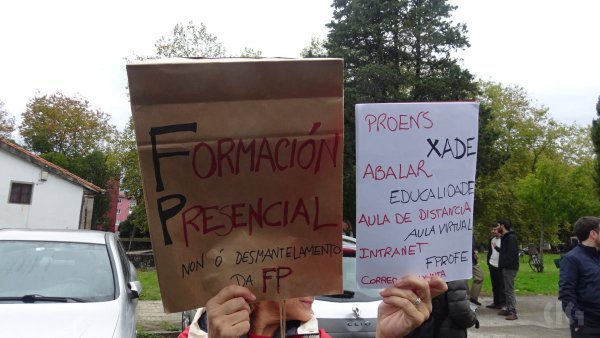 FORMACIÓN
PRESENCIAL
NON Ó DESMANTELAMENTO
DA FP
PROENS
XADE
ABALAR
EDUCALIDADE
AULA DE DISTANCIA
AULA VIRTUAL
INTRANET
FPROFE
CORREO
CLIO